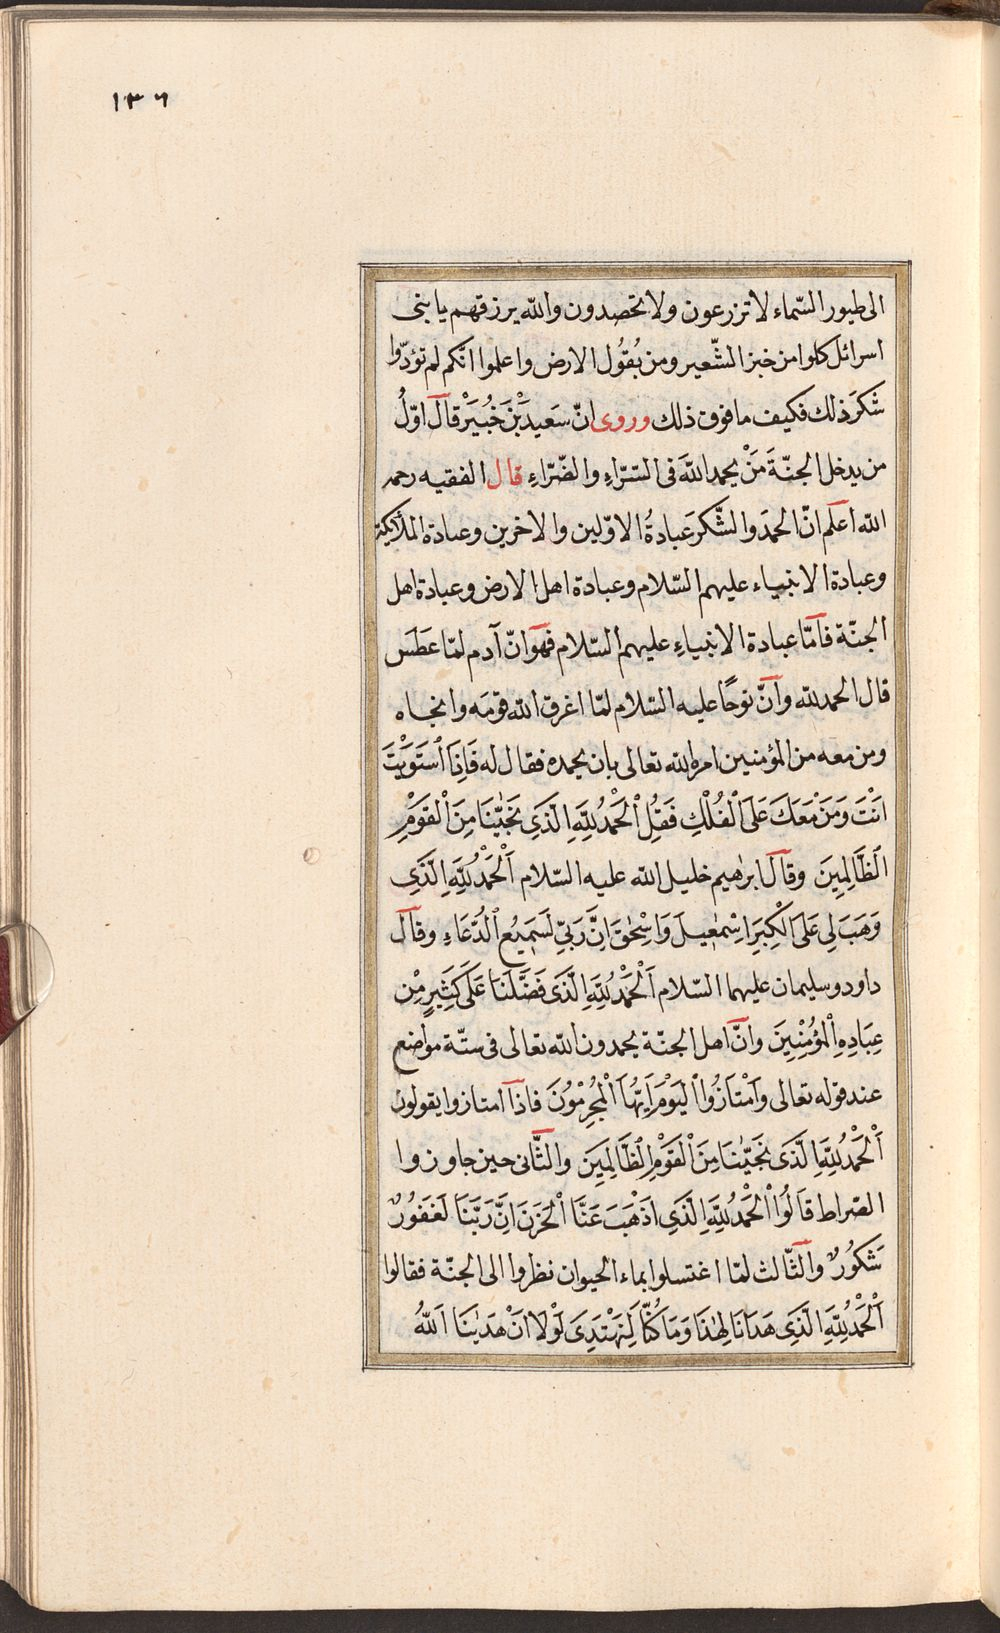 ١٣٦
الى طيور السّماء لا تزرعون ولا تحصدون والله يرزقهم يا بنى
اسرائل كلوا من خبز الشّعير ومن بُقُول الارض واعلموا انّكم لم تؤدّوا
شكرَ ذلك فكيف ما فوق ذلك وروى انّ سَعيدَ بْنَ جُبَيْرْ قال اوّلُ
من يدخل الجنّةَ مَنْ يحمد اللّهَ فى السّرّاءِ والضّرّاءِ قال الفقيه رحمه
اللّه اعلم انّ الحمدَ والشّكرَ عبادةُ الاوّلين والاخرين وعبادة الملائكة
وعبادة الانبياء عليهم السّلام وعبادة اهل الارض وعبادة اهل
الجنّة فامّا عبادة الانبياءِ عليهم السّلام فهو انّ آدم لمّا عَطَسَ
قال الحمد للّه وانّ نوحًا عليه السّلام لمّا اغرق اللّه قومَه وانجاه
ومن معه من المؤمنين امره اللّه تعالى بان يحمده فقال له فَاِذَا ٱسْتَوَيْتَ
اَنْتَ وَمَنْ مَعَكَ عَلَى ٱلْفُلْكِ فَقُلِ ٱلْحَمْدُ لِلَّهِ ٱلَّذِى نَجّٰينَا مِنَ ٱلْقَوْمِ
ٱلظَّالِمِينَ وقال ابرٰهيم خليل اللّه عليه السّلام اَلْحَمْدُ لِلَّهِ ٱلَّذِى
وَهَبَ لِى عَلَى ٱلْكِبَرِ اِسْمٰعِيلَ وَاِسْحٰقَ اِنَّ رَبِّى لَسَمِيعُ ٱلدُّعَاءِ وقال
داود وسليمان عليهما السّلام اَلْحَمْدُ لِلَّهِ ٱلَّذِى فَضَّلَنَا عَلَى كَثِيرٍ مِنْ
عِبَادِهِ ٱلْمُؤْمِنِينَ وانّ اهل الجنّة يحمدون اللّه تعالى فى ستّة مواضع
عند قوله تعالى وَٱمْتَازُوا ٱلْيَوْمَ اَيُّهَا ٱلْمُجْرِمُونَ فاذا امتازوا يقولون
اَلْحَمْدُ لِلَّهِ ٱلَّذِى نَجّٰينَا مِنَ ٱلْقَوْمِ ٱلظَّالِمِينَ والثّانى حين جاوزوا
الصّراط قَالُوا ٱلْحَمْدُ لِلَّهِ ٱلَّذِى اَذْهَبَ عَنَّا ٱلْحَزَنَ اِنَّ رَبَّنَا لَغَفُورٌ
شَكُورٌ والثّالث لمّا اغتسلوا بماء الحيوان نظروا الى الجنّة فقالوا
اَلْحَمْدُ لِلَّهِ ٱلَّذِى هَدَانَا لِهٰذَا وَمَا كُنَّا لِنَهْتَدِىَ لَوْلَا اَنْ هَدٰينَا ٱللّٰهُ